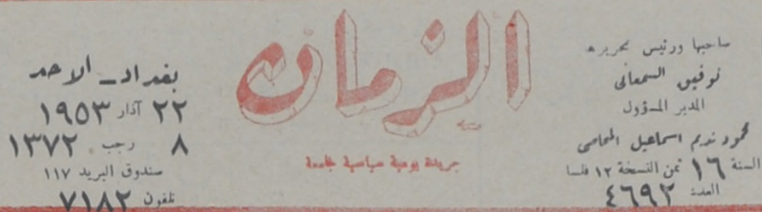 صاحبها ورئيس تحريره
توفيق السمعاني
المدير المسؤول
محمود نديم اسماعيل المحامي
السنة ١٦ ثمن النسخة ١٢ فلسا
العدد ٤٦٩٢
الزمان
جريدة يومية سياسية جامعة
بغداد - الاحد
٢٢ آذار ١٩٥٣
٨ رجب ١٣٧٢
صندوق البريد ١١٧
تلفون ٧١٨٢